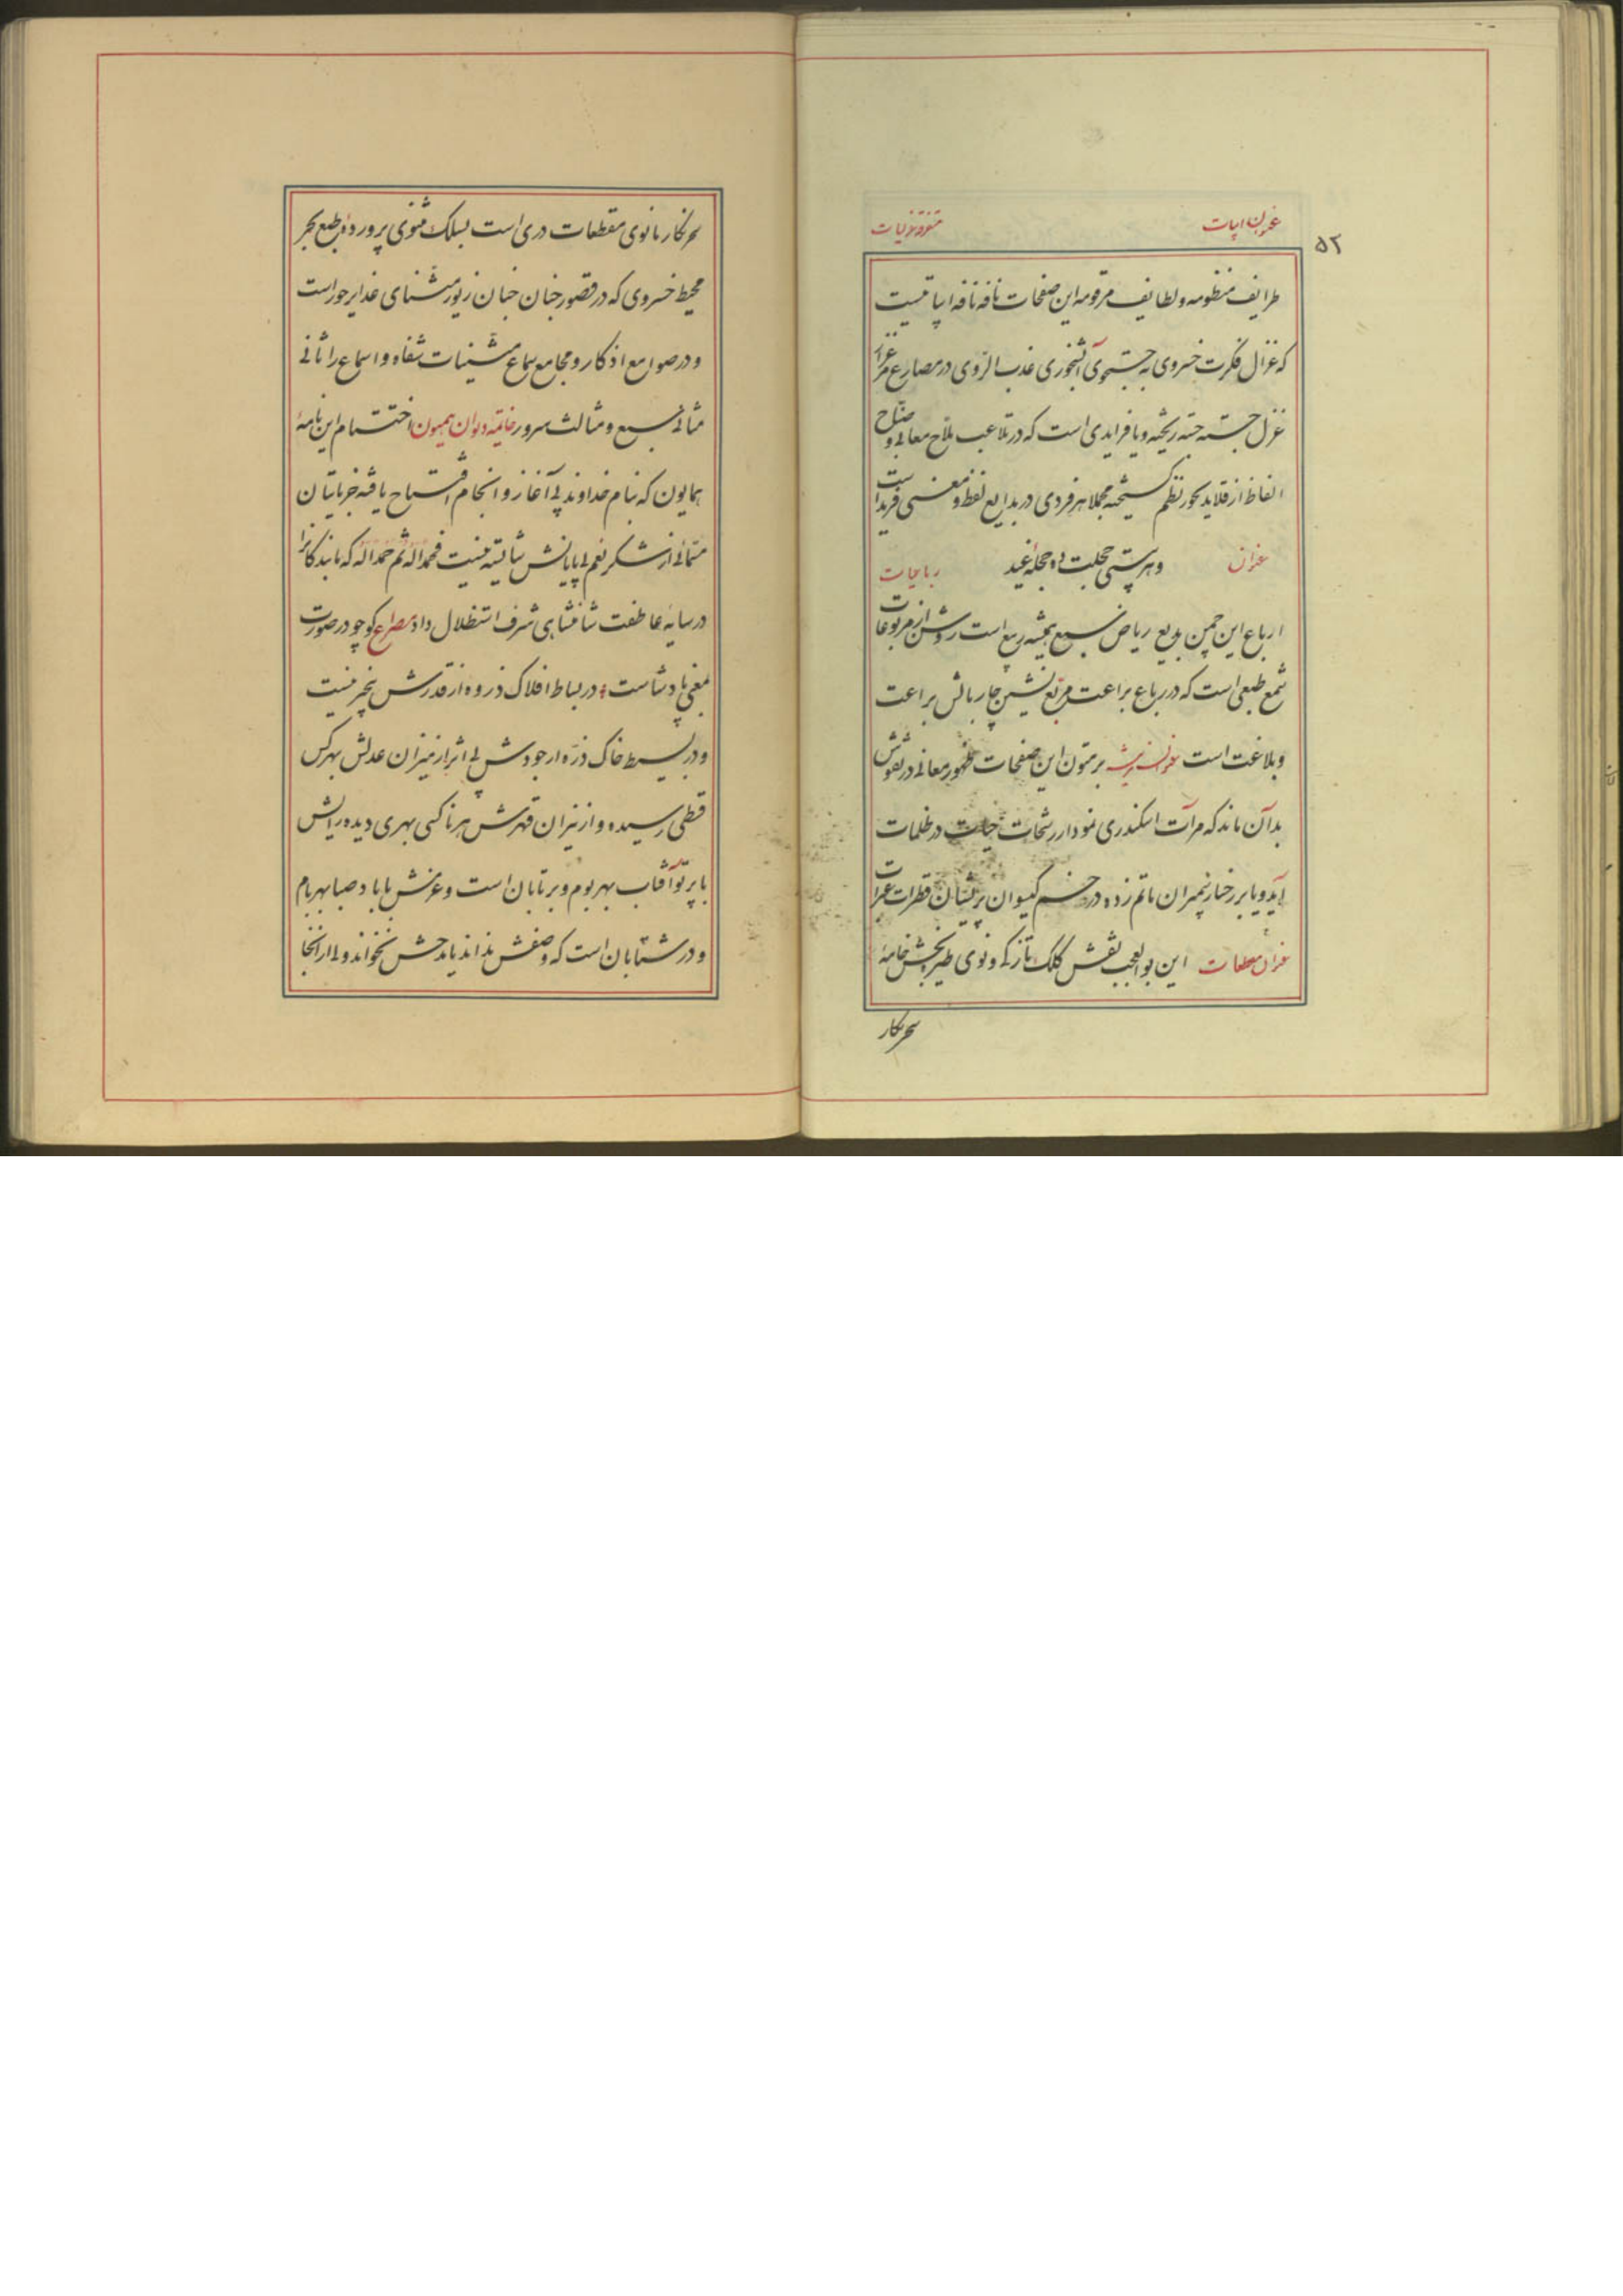 عنوان ابیات متفرقه غزلیات
۵۲
طرایف منظومه و لطایف مرقومه این صفحات نافه نافه ابیاتیست
که غزال فکرت خسروی به جستجوی آبشخوری عذب الروی در مصارع
غزل جسته جسته ریخته و یا فرایدی است که در تلاعب ملاح معانی و
الفاظ از قلاید بحور نظم گسیخته مجملا هر فردی در بدایع لفظ و معنی فرید است
عنوان وهر بیتی حجلت ده حجله غید رباعیات
ارباع این چمن بدیع ریاض نسیع همیشه ربیع است روشن از مربوعات
شمع طبعی است که در رباع براعت مربع نشین چار بالش براعت
و بلاغت است عنوان بر متون این صفحات ظهور معانی در نقوش
بدان ماند که مرآت اسکندری نمودار رشحات حیات در ظلمات
آید و یا بر رخسار ماتم زده در خم گیسوان پریشان قطرات عبرات
عنوان مقطعات این بوالعجب نقش کلک تازکی و نوی طیر بخش خامهٔ
سحر نگار
سحر نگار مانوی مقطعات دری است بسلک مثنوی پروردهٔ طبع بحر
محیط خسروی که در قصور جنان جنان زیور مثنای غدایر حور است
و در صوامع اذکار و مجامع سماع مشینات شفاه و اسماع را ثانی
مثانی سبع و مثالث سرور خاتمه دیوان همیون اختتام این نامهٔ
همایون که بنام خداوند بی آغاز و انجام افتتاح یافته جز باتیان
از شکر نعم بی پایانش شایسته نیست فحمدا له ثم حمدا له که ما بندگانرا
در سایه عاطفت شاهنشاهی شرف استظلال داد مصراع کو چو در صورت
بمعنی پادشاست در بساط افلاک ذروه از قدرش بیخبر نیست
و در بسیط خاک ذره از جودش بی اثر از میزان عدلش بهر کس
قسطی رسیده و از نیران قهرش هر ناکسی بهری دیده رایش
با پرتو آفتاب بهر بوم و بر تابان است و عزمش با باد صبا بهر بام
و در شتابان است که وصفش نداند یا مدحش نخواند ولی از آنجا